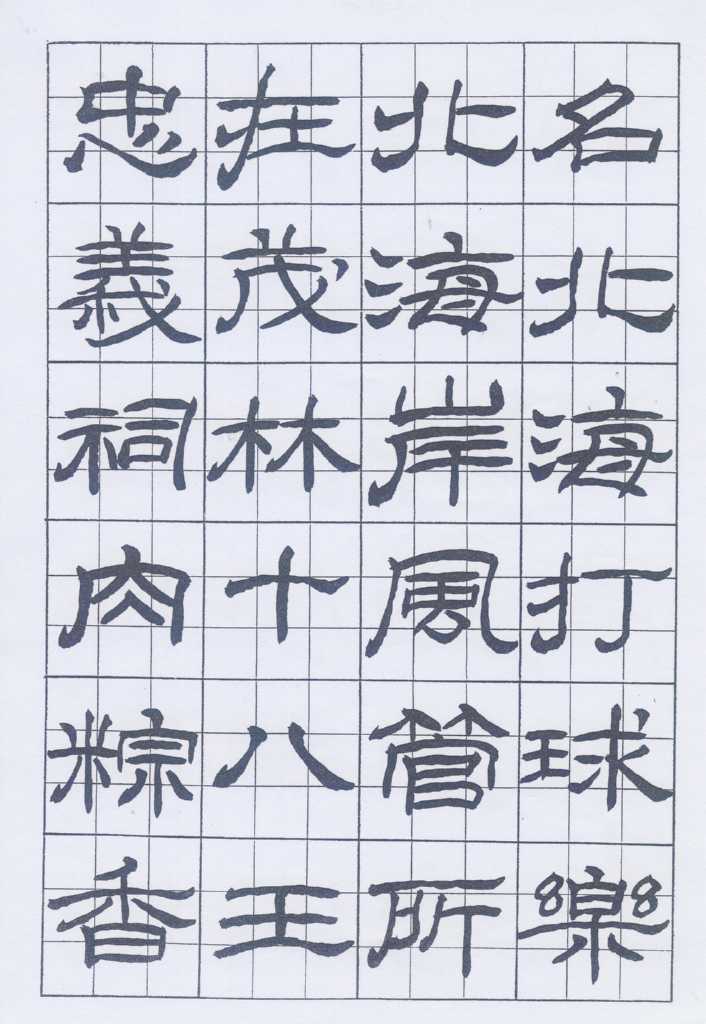 名北海打球樂
北海岸風管所
在茂林十八王
忠義祠肉粽香